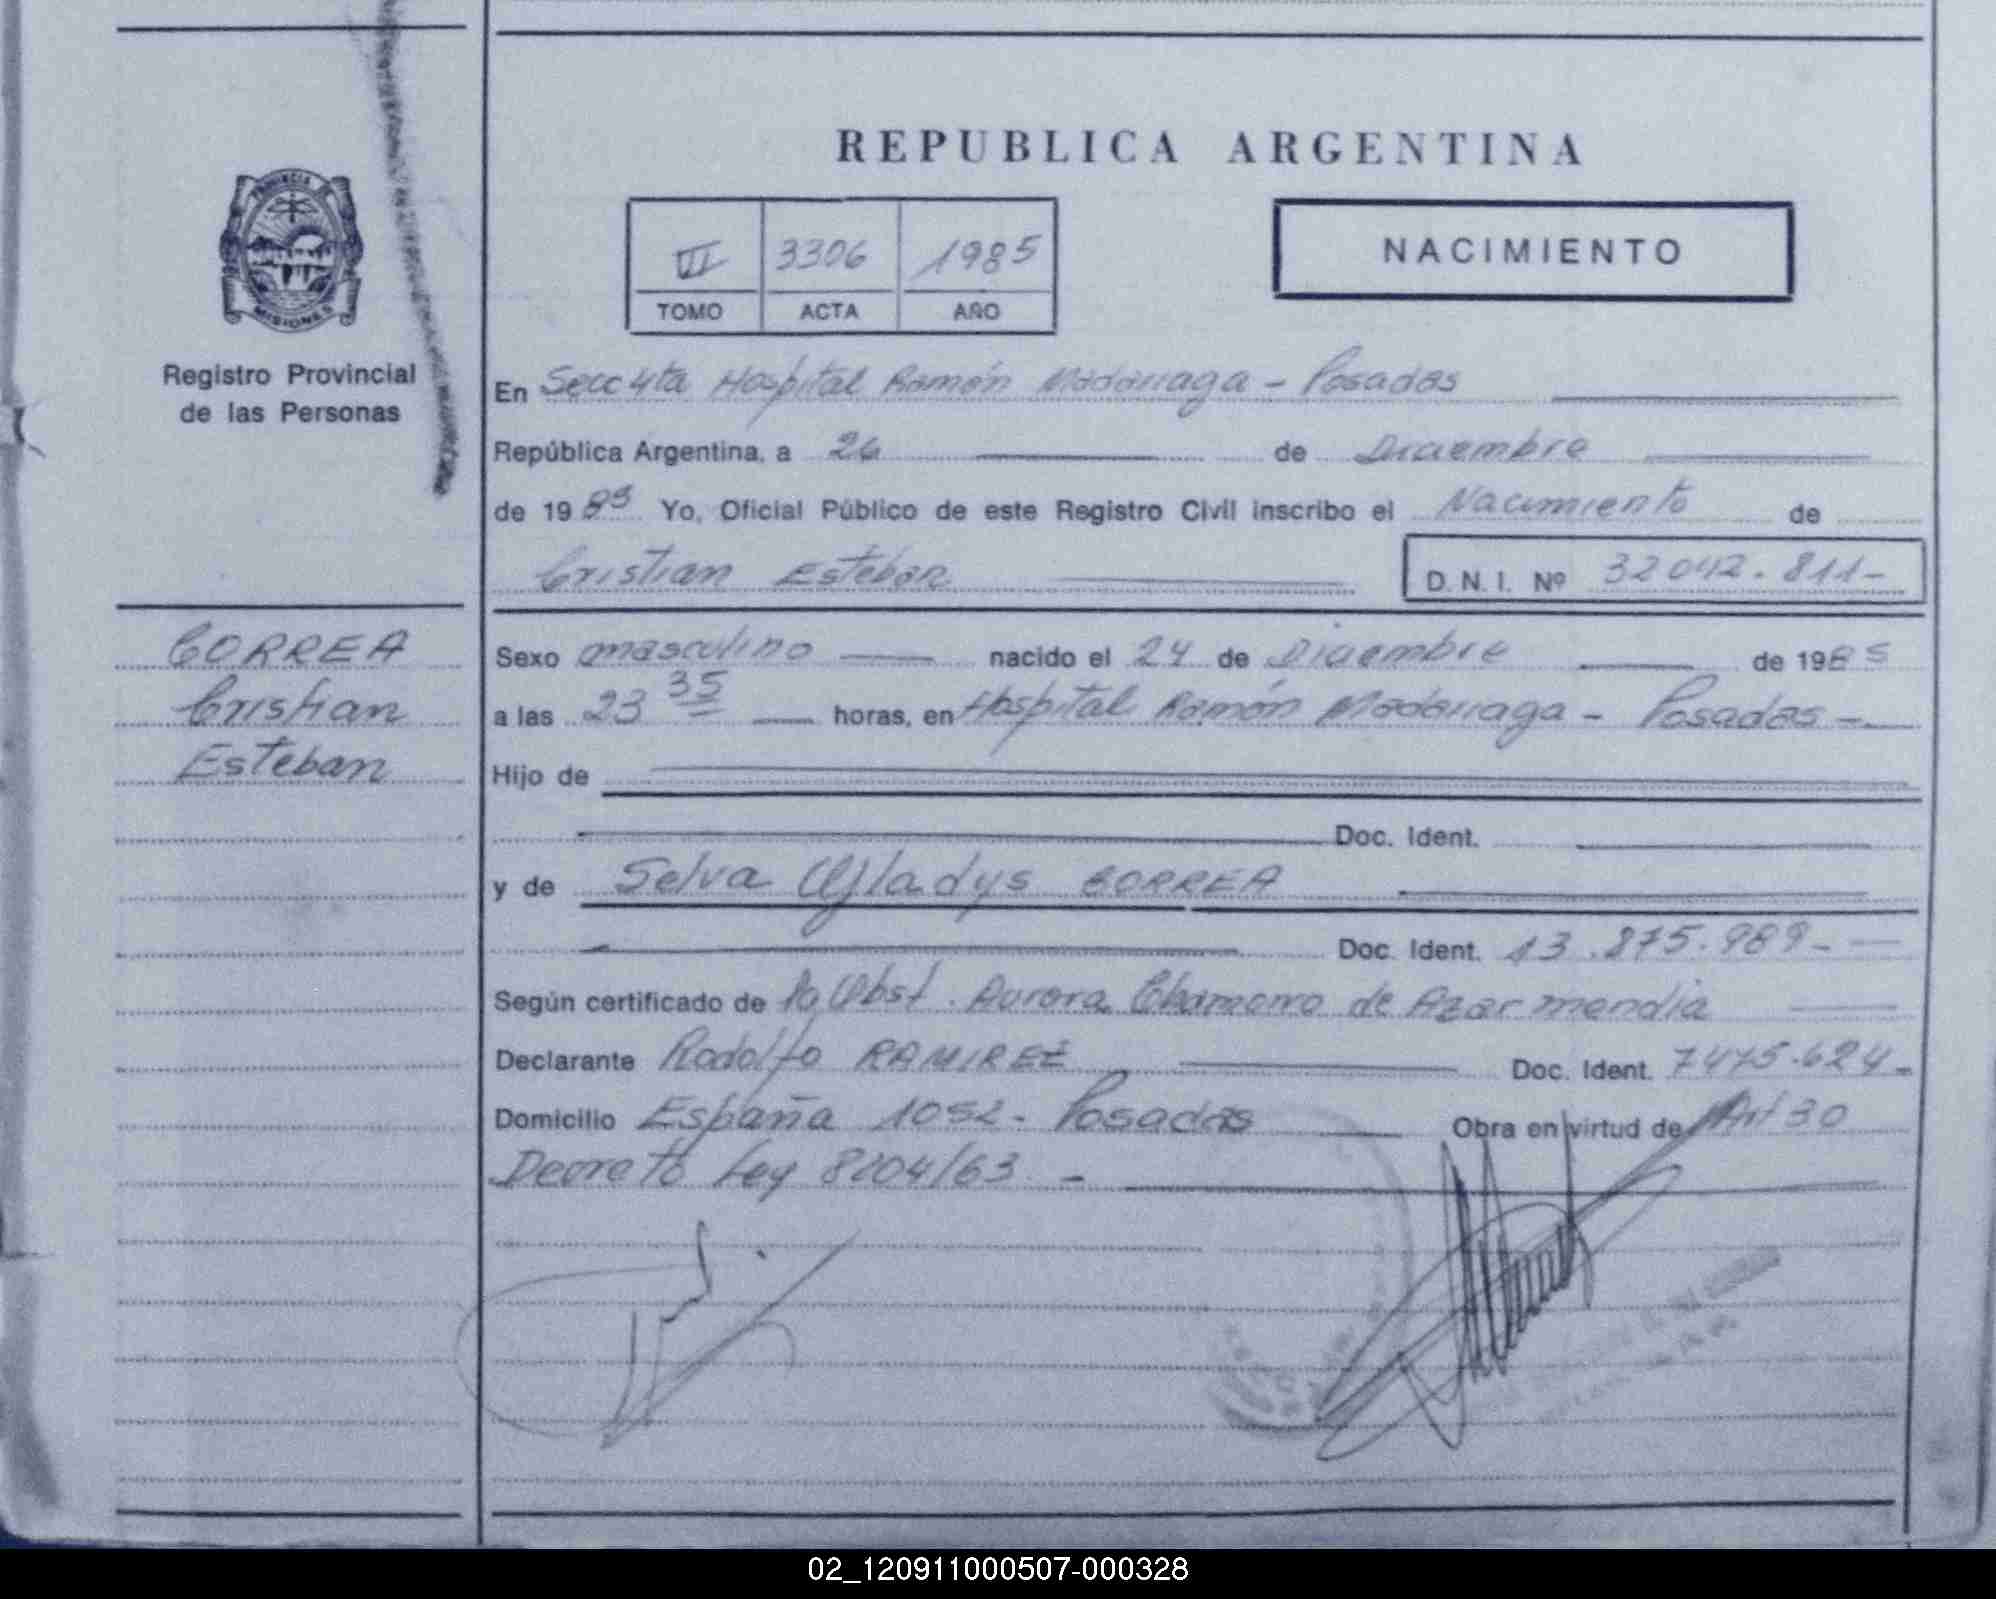 REPUBLICA ARGENTINA
PROVINCIA DE
MISIONES
Registro Provincial
de las Personas
3306 1985
TOMO ACTA AÑO
NACIMIENTO
En Secc 4ta Hospital Ramón Madariaga - Posadas
República Argentina, a 26 de Diciembre
de 1985 Yo, Oficial Público de este Registro Civil inscribo el Nacimiento de
Cristian Esteban D. N. I. Nº 32042.811-
CORREA
Cristian
Esteban
Sexo masculino nacido el 24 de Diciembre de 1985
a las 23 35 horas, en Hospital Ramón Madariaga - Posadas -
Hijo de
Doc. Ident.
y de Selva Gladys CORREA
Doc. Ident. 13.875.989-
Según certificado de la Obst. Aurora Chamorro de Azarmendia
Declarante Rodolfo RAMIREZ Doc. Ident. 7475.624-
Domicilio España 1052- Posadas Obra en virtud de Art 30
Decreto Ley 8204/63 -
02_120911000507-000328